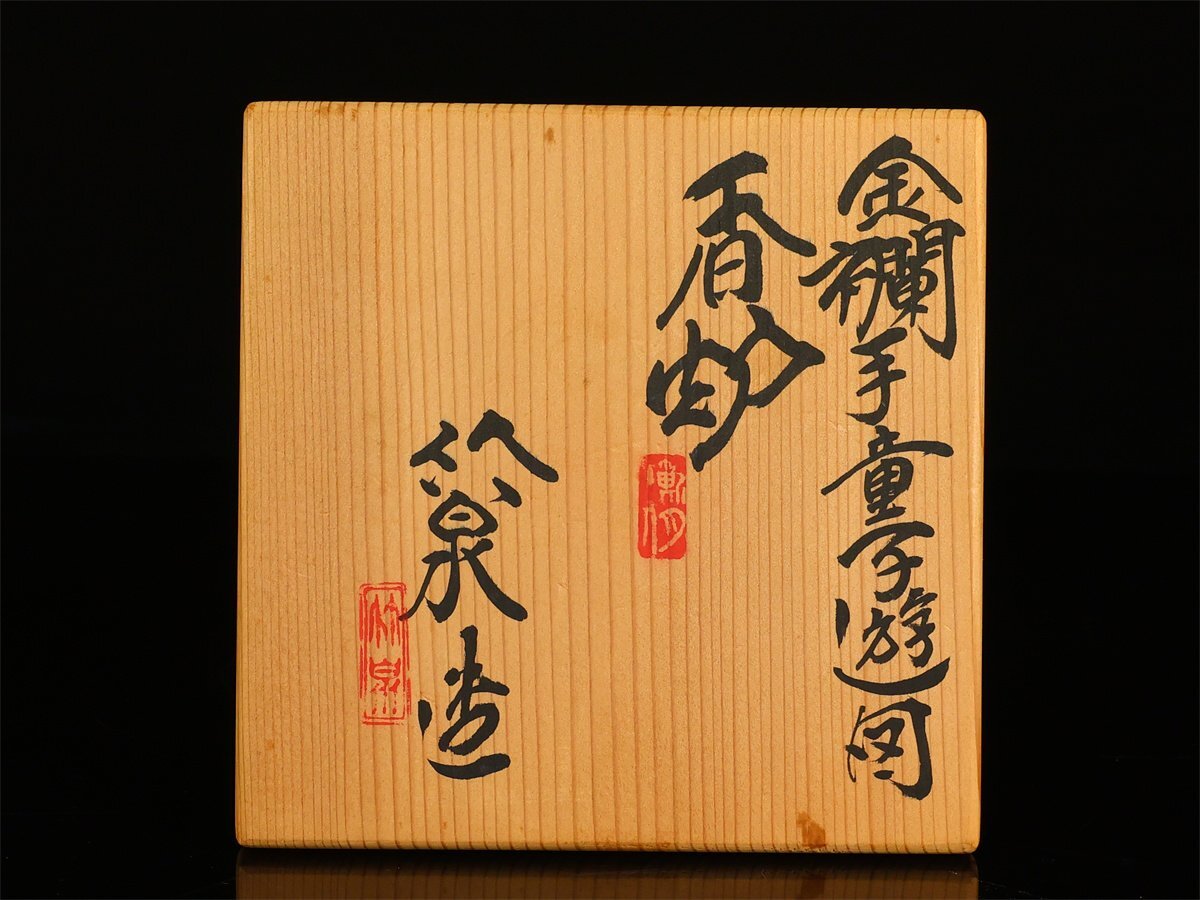 金襴手童子遊図
香炉
竹泉造
竹泉